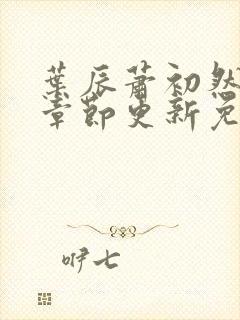 葉辰蕭初然
章節更新免
咿七